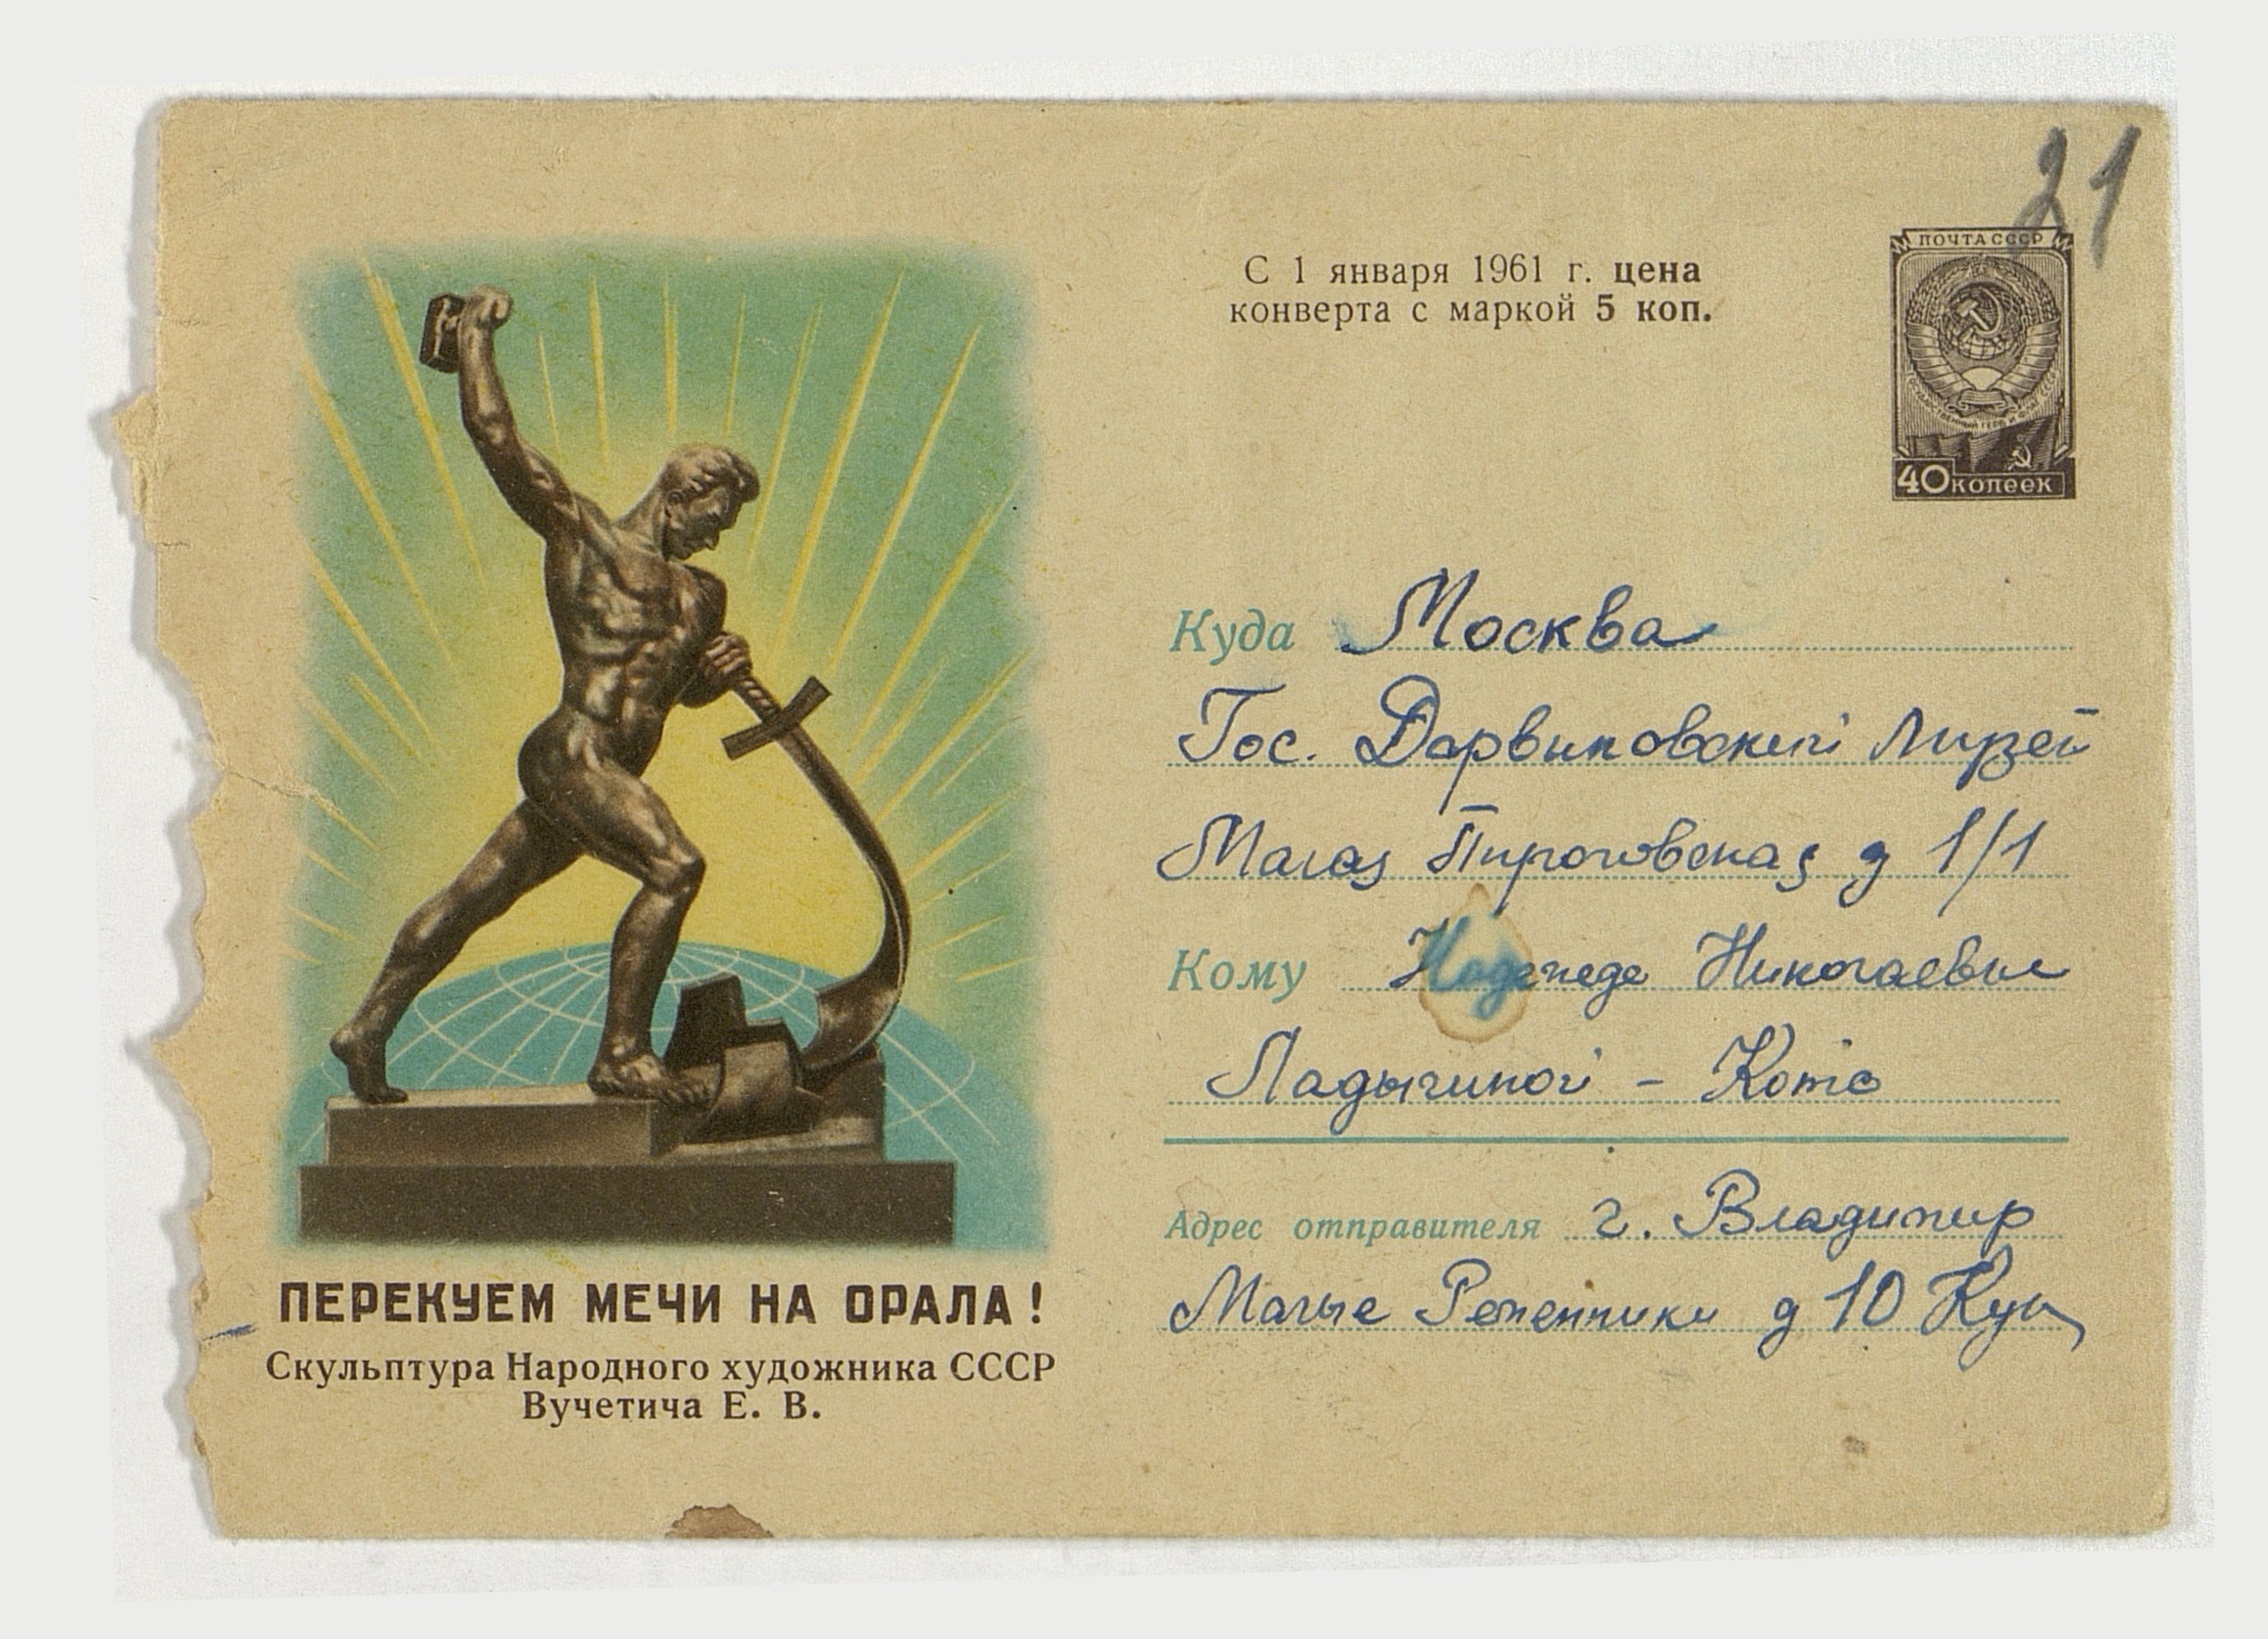 21
С 1 января 1961 г. цена
конверта с маркой 5 коп.
ПОЧТА СССР
ГОСУДАРСТВЕННЫЙ ГЕРБ И ФЛАГ СССР
40 копеек
Куда Москва
Гос. Дарвиновский Музей
Малая Пироговская д 1/1
Кому Надежде Николаевне
Ладыгиной - Котс
Адрес отправителя г. Владимир
Малые Ременники д 10
ПЕРЕКУЕМ МЕЧИ НА ОРАЛА!
Скульптура Народного художника СССР
Вучетича Е. В.